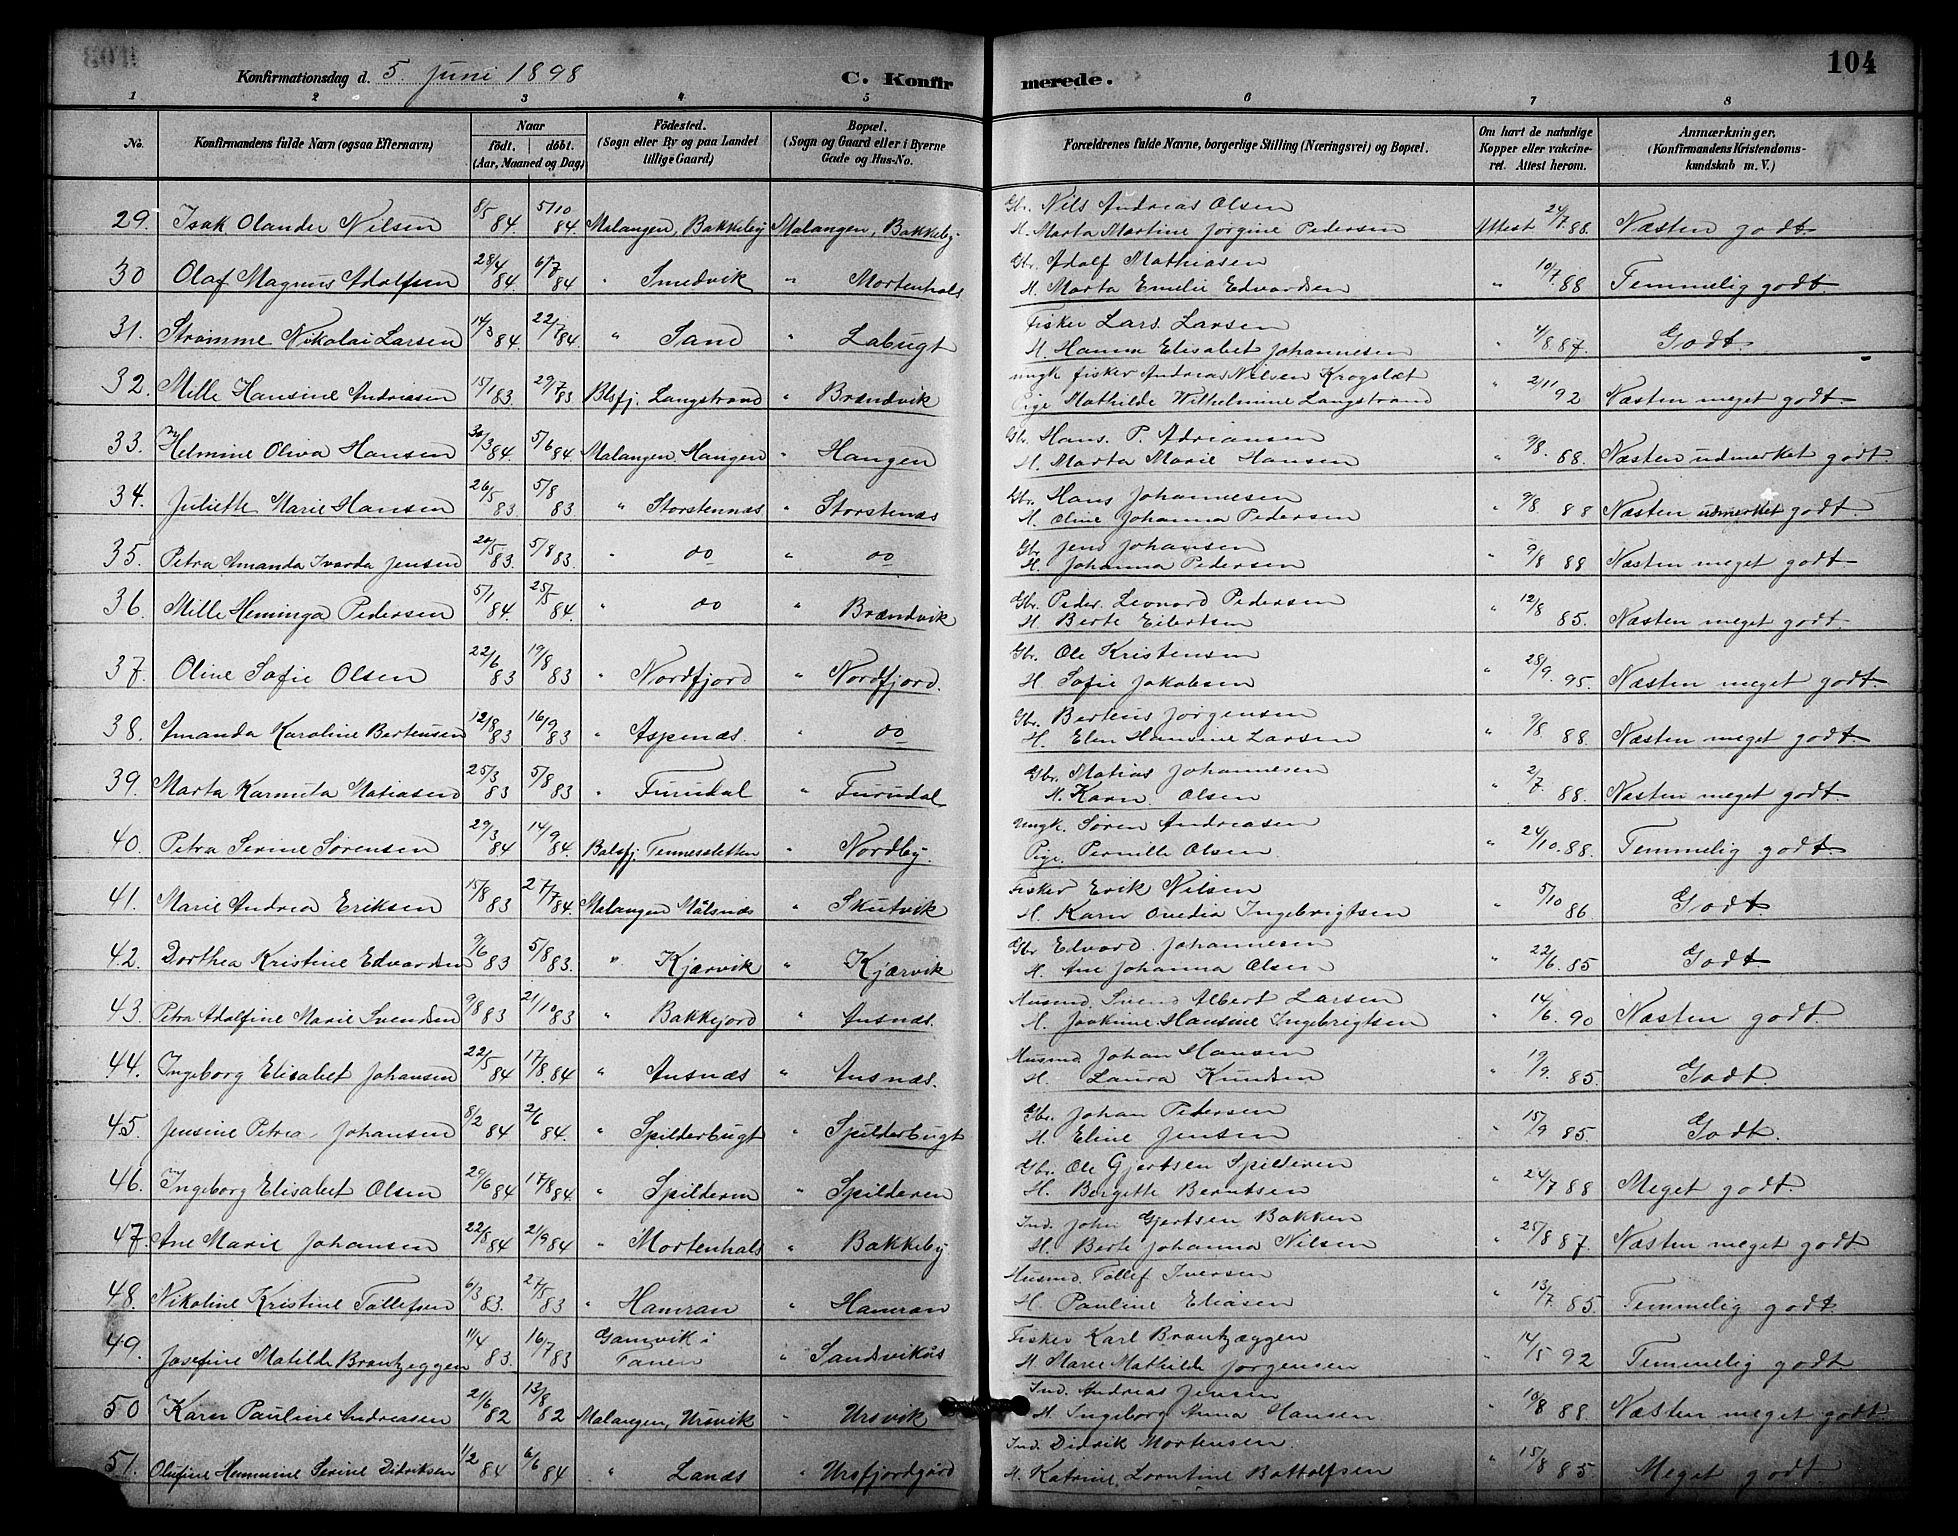 Konfirmationsdag d. 5. Juni 1898 C. Konfirmerede. 104
1 2 3 4 5 6 7 8
No. Konfirmandens fulde Navn (ogsaa Efternavn) Naar födt. döbt. (Aar, Maaned og Dag) Födested. (Sogn eller By og paa Landet tillige Gaard) Bopæl. (Sogn og Gaard eller i Byerne Gade og Hus-No. Forældrenes fulde Navne, borgerlige Stilling (Næringsvei) og Bopæl. Om havt de naturlige Kopper eller vakcineret. Attest herom. Anmærkninger. (Konfirmandens Kristendomskundskab m. V.)
29. Isak Olander Nilsen 8/5 84. 5/10 84. Malangen, Bakkeby Malangen, Bakkeby. Gbr. Nils Andreas Olsen
H. Marta Martine Jørgine Pedersen Attest 24/7 88. Næsten godt.
30 Olaf Magnus Adolfsen 28/4 84. 6/7 84 " Smedvik " Mortenhals Gbr. Adolf Mathiasen
H. Marta Emelie Edvardsen " 10/7 88 Temmelig godt.
31. Strømme Nikolai Larsen 14/3 84. 22/7 84. " Sand " Labugt Fisker Lars Larsen
H. Hanna Elisabet Johannesen " 4/8 87. Godt.
32. Mille Hansine Andreasen 15/1 83. 29/7 83 Blsfj. Langstrand " Brændvik ungk fisker Andreas Nilsen Krogslæt
Pige Mathilde Wilhelmine Langstrand " 2/11 92 Næsten meget godt.
33. Helmine Oliva Hansen 30/3 84. 5/6 84. Malangen. Hangen " Hangen Gbr. Hans. P. Adriansen
H. Marta Marie Hansen " 9/8. 88. Næsten udmerket godt.
34. Juliette Marie Hansen 26/5 83. 5/8 83 " Storstennæs " Storstenæs Gbr. Hans Johannesen
H. Oline Johanna Pedersen " 9/8 88 Næsten udmerket godt.
35. Petra Amanda Ivarda Jensen 20/5 83. 5/8 83 " do " do Gbr Jens Johansen
H. Johanna Pedersen " 9/8 88 Næsten meget godt.
36. Mille Heminga Pedersen 5/1 84. 25/5 84. " do " Brændvik Gbr. Peder. Leonard Pedersen
H. Berte Eilertsen " 12/8 85. Næsten meget godt.
37. Oline Sofie Olsen 22/6 83 19/8 83 " Nordfjord " Nordfjord. Gbr. Ole Kristensen
H. Sofie Jakobsen " 28/9. 95. Næsten meget godt.
38. Amanda Karoline Bertensen 12/8 83 16/9 83 " Aspenæs. " do Gbr. Berteus Jørgensen
H. Elen Hansine Larsen " 9/8 88. Næsten meget godt.
39. Marta Karmita Matiasen 25/3 83 5/8 83 " Furudal " Furudal Gbr. Matias Johannesen
H. Karn Olsen " 2/7 88. Næsten meget godt.
40. Petra Serine Sørensen 29/3 84 14/9 84. Balsfj. Tennessletten " Nordby. Ungk. Søren Andreasen
Pige. Pernille Olsen " 24/10. 88. Temmelig godt.
41. Marie Andrea Eriksen 15/8 83 27/7 84. Malangen Målsnæs " Skutvik Fisker Erik Nilsen
H. Karn Ovedia Ingebrigtsen " 5/10 86 Godt.
42. Dorthea Kristine Edvardsen 9/6 83 5/8 83. " Kjærvik " Kjærvik Gbr Edvard Johannesen
H. Ane Johanna Olsen " 22/6. 85 Godt.
43. Petra Adolfine Marie Svendsen 9/8 83 21/10 83 " Bakkejord " Ansnæs. Husmd. Svend Albert Larsen
H. Joakime Hansine Ingebrigtsen " 14/6. 90 Næsten godt.
44. Ingeborg Elisabet Johansen 22/5 84 17/8. 84 " Ansnæs " Ansnæs. Husmd Johan Hansen
H. Laura Knudsen " 19/9. 85. Godt.
45. Jensine Petrea Johansen 8/2 84 2/6 84. " Spilderbugt " Spilderbugt Gbr. Johan Pedersen
H. Eline Jensen " 15/9 85 Godt.
46. Ingeborg Elisabet Olsen 29/6 84 17/8 84. " Spilderen " Spilderen Gbr. Ole Gjertsen Spilderen
H. Bergette Berntsen " 24/7 88 Meget godt.
47. Ane Marie Johansen 22/8 84 21/9 84 " Mortenhals " Bakkeby Ind. John Gjertsen Bakken
H. Berte Johanna Nilsen " 25/8 87. Næsten meget godt
48. Nikoline Kristine Tollefsen 6/3 83. 27/5 83 " Hamran " Hamran Husmd. Tollef Iversen
H. Pauline Eliasen " 13/7 85. Temmelig godt.
49. Josefine Matilde Brantzeggen 11/4 83. 16/7 83 Gamvik i Tanen " Sandsvikås Fisker Karl Brantzæggen
H. Marie Mathilde Jørgensen " 4/5 92 Temmelig godt.
50 Karn Pauline Andreasen 21/6 82 13/8 82 Malangen, Ursvik " Ursvik Ind. Andreas Jensen
H. Ingeborg Anna Hansen " 10/8 88 Næsten meget godt
51. Olufine Hemmine Serine Didriksen 1/2 84 6/6 84 " Lanæs " Ursfjordgård Ind. Didrik Mortensen.
H. Katrine Lorntine Bottolfsen " 15/8 85 Meget godt